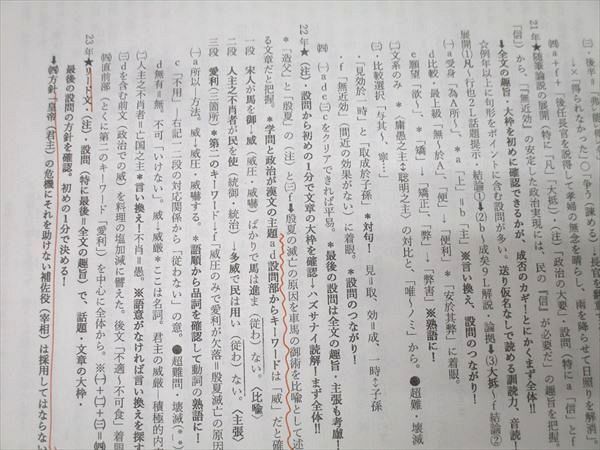 21年★随筆論説の展開(特に「凡」「大抵」、(注)「政治の大要」・設問(特にa「信」とf
「信」から、「無近効」の安定した政治実現には、民の「信」が必要だ」の趣旨を把握。
↓全文の趣旨・大枠を初めに確認できるかが、成否のカギ！とにかくまず全体‼
☆例年以上に句形をポイントに含む設問が多い。送り仮名なしで読める訓読力、音読！
㈠a受身「為A所」。*a「上」=b「主」*言い換え、設問のつながり！
d比較・最上級「無~於A」、「便」→「便利」*「安於其弊」に着眼。
e願望「欲~」、*「矯」→「矯正」、「弊」→「弊害」※熟語に！
㈡文系のみ *「庸愚之主⇔聡明之主」の対比と、「唯~ノミ」から。●超難・壊滅
㈢・比較選択「与其~、寧…」
・「見効於一時」と「取成於子孫」*対句！ 見=取、効=成、一時↕子孫
・f「無近効」(間近の効果がない)に着眼。*設問のつながり！
㈣㈠adc㈢cをクリアできれば平易。*最後の設問は全文の趣旨・主張も考慮！
22年★(注)・設問から初めの1分で文章の大枠を確認→ハズサナイ読解！まず全体‼
*「造父」と「殷夏」の(注)と㈢→殷夏の滅亡の原因を車馬の御術を比喩として述
る文章だと把握。*学問と政治が漢文の主題ad設問部からキーワードは「威」だと確
一段 宋人が馬を御→威(威圧・威嚇)ばかりで馬は進ま(従わ)ない。(比喩)
二段 人主之不肖者が民を使(統御・統治)→多威で民は用い(従わ)ない。(主張)
三段 愛利(三箇所)*第二のキーワード→f「威圧のみで愛利が欠落=殷夏滅亡の原因
㈠a所以:方法。威→威圧・威嚇する。*語順から品詞を確認して動詞の熟語に！
c「不用」:右記一二段の対応関係から「従わない」の意。●超難問・壊滅(*
d無有=無。不可「いけない」。威→威厳*ここは名詞。君主の威厳=積極的内
㈡人主之不肖者=亡国之主*言い換え！不肖=愚。※語意がなければ言い換えを探す
㈢dを含む前文(政治での威)を料理の塩加減に譬えた。後文「不適~不可食」着眼
㈣直前部(とくに第二のキーワード「愛利」)を中心に全体から。※㈠+㈡+㈢=㈣
23年★リード文・(注)・設問(特に最後=全文の趣旨)で、話題・文章の大枠・
最後の設問の方針を確認。初めの1分で決める！
↓㈣方針「皇帝(君主)の危機にそれを助けない補佐役(宰相)は採用してはならない